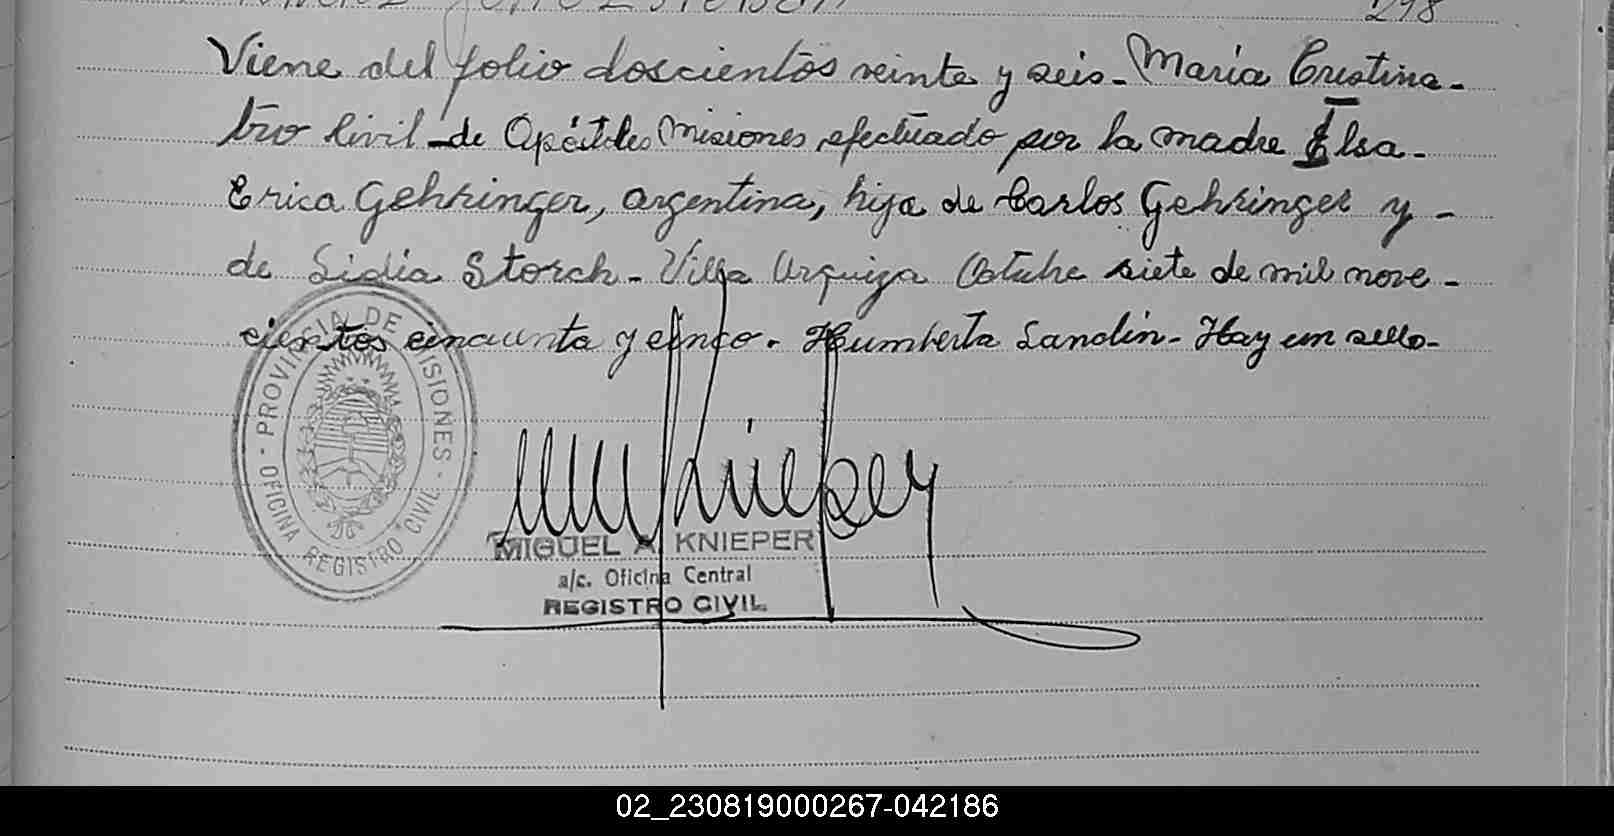 298
Viene del folio doscientos veinte y seis - María Cristina -
tro Civil - de Apóstoles Misiones efectuado por la madre Elsa -
Erica Gehringer, argentina, hija de Carlos Gehringer y -
de Lidia Storch - Villa Urquiza Octubre siete de mil nove -
cientos cincuenta y cinco. Humberta Landin - Hay un sello -
PROVINCIA DE MISIONES - OFICINA REGISTRO CIVIL -
Knieper
MIGUEL A. KNIEPER
a/c. Oficina Central
REGISTRO CIVIL
02_230819000267-042186